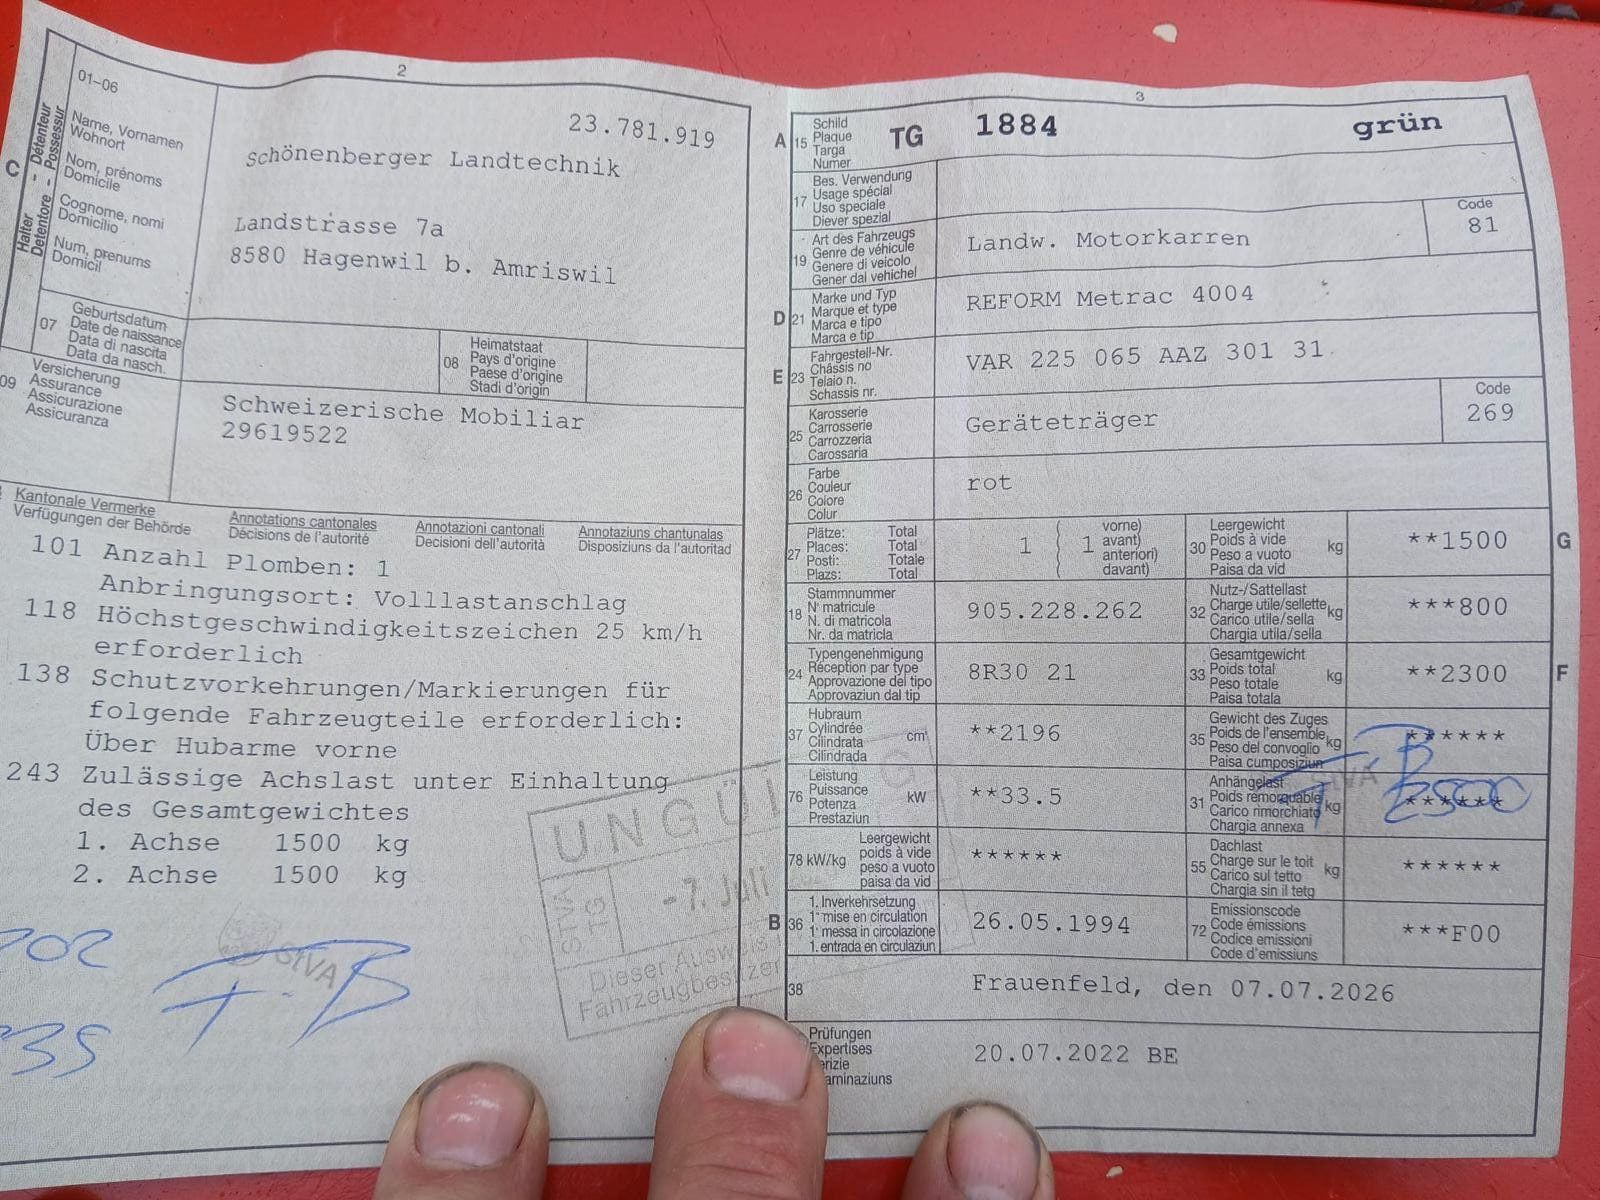 2
01–06
Name, Vornamen
Wohnort
Nom, prénoms
Domicile
Cognome, nomi
Domicilio
Num, prenums
Domicil
C
Halter - Détenteur
Detentore - Possessur
23.781.919
Schönenberger Landtechnik
Landstrasse 7a
8580 Hagenwil b. Amriswil
07
Geburtsdatum
Date de naissance
Data di nascita
Data da nasch.
08
Heimatstaat
Pays d'origine
Paese d'origine
Stadi d'origin
09
Versicherung
Assurance
Assicurazione
Assicuranza
Schweizerische Mobiliar
29619522
Kantonale Vermerke
Verfügungen der Behörde
Annotations cantonales
Décisions de l'autorité
Annotazioni cantonali
Decisioni dell'autorità
Annotaziuns chantunalas
Disposiziuns da l'autoritad
101 Anzahl Plomben: 1
Anbringungsort: Volllastanschlag
118 Höchstgeschwindigkeitszeichen 25 km/h
erforderlich
138 Schutzvorkehrungen/Markierungen für
folgende Fahrzeugteile erforderlich:
Über Hubarme vorne
243 Zulässige Achslast unter Einhaltung
des Gesamtgewichtes
1. Achse 1500 kg
2. Achse 1500 kg
UNGÜ G
STVA
TG
-7. Juli
Dieser Ausweis
Fahrzeugbesitzer
StVA
202
35
3
A 15
Schild
Plaque
Targa
Numer
TG 1884 grün
17
Bes. Verwendung
Usage spécial
Uso speciale
Diever spezial
19
Art des Fahrzeugs
Genre de véhicule
Genere di veicolo
Gener dal vehichel
Landw. Motorkarren
Code
81
D 21
Marke und Typ
Marque et type
Marca e tipo
Marca e tip
REFORM Metrac 4004
E 23
Fahrgestell-Nr.
Châssis no
Telaio n.
Schassis nr.
VAR 225 065 AAZ 301 31
25
Karosserie
Carrosserie
Carrozzeria
Carossaria
Geräteträger
Code
269
26
Farbe
Couleur
Colore
Colur
rot
27
Plätze: Total
Places: Total
Posti: Totale
Plazs: Total
1 ( 1
vorne)
avant)
anteriori)
davant)
30
Leergewicht
Poids à vide
Peso a vuoto
Paisa da vid
kg
**1500
G
18
Stammnummer
N° matricule
N. di matricola
Nr. da matricla
905.228.262
32
Nutz-/Sattellast
Charge utile/sellette
Carico utile/sella
Chargia utila/sella
kg
***800
24
Typengenehmigung
Réception par type
Approvazione del tipo
Approvaziun dal tip
8R30 21
33
Gesamtgewicht
Poids total
Peso totale
Paisa totala
kg
**2300
F
37
Hubraum
Cylindrée
Cilindrata
Cilindrada
cm³
**2196
35
Gewicht des Zuges
Poids de l'ensemble
Peso del convoglio
Paisa cumposiziun
kg
******
76
Leistung
Puissance
Potenza
Prestaziun
kW
**33.5
31
Anhängelast
Poids remorquable
Carico rimorchiato
Chargia annexa
kg
******
2500
78 kW/kg
Leergewicht
poids à vide
peso a vuoto
paisa da vid
******
55
Dachlast
Charge sur le toit
Carico sul tetto
Chargia sin il tetg
kg
******
B 36
1. Inverkehrsetzung
1re mise en circulation
1a messa in circolazione
1. entrada en circulaziun
26.05.1994
72
Emissionscode
Code émissions
Codice emissioni
Code d'emissiuns
***F00
38
Frauenfeld, den 07.07.2026
Prüfungen
Expertises
20.07.2022 BE